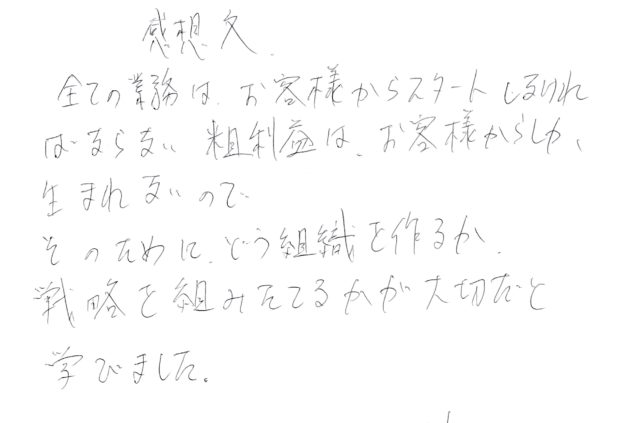 感想文
全ての業務は、お客様からスタートしなければ
ばならない 粗利益は、お客様からしか、
生まれないので
そのために、どう組織を作るか、
戦略を組みたてるかが大切だと
学びました。